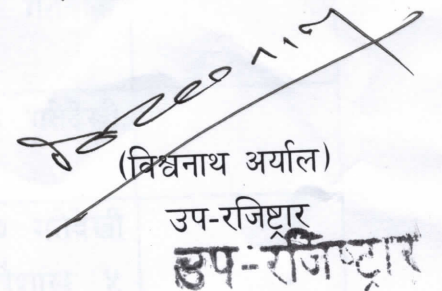 (विश्वनाथ अर्याल)
उप-रजिष्ट्रार
उप-रजिष्ट्रार